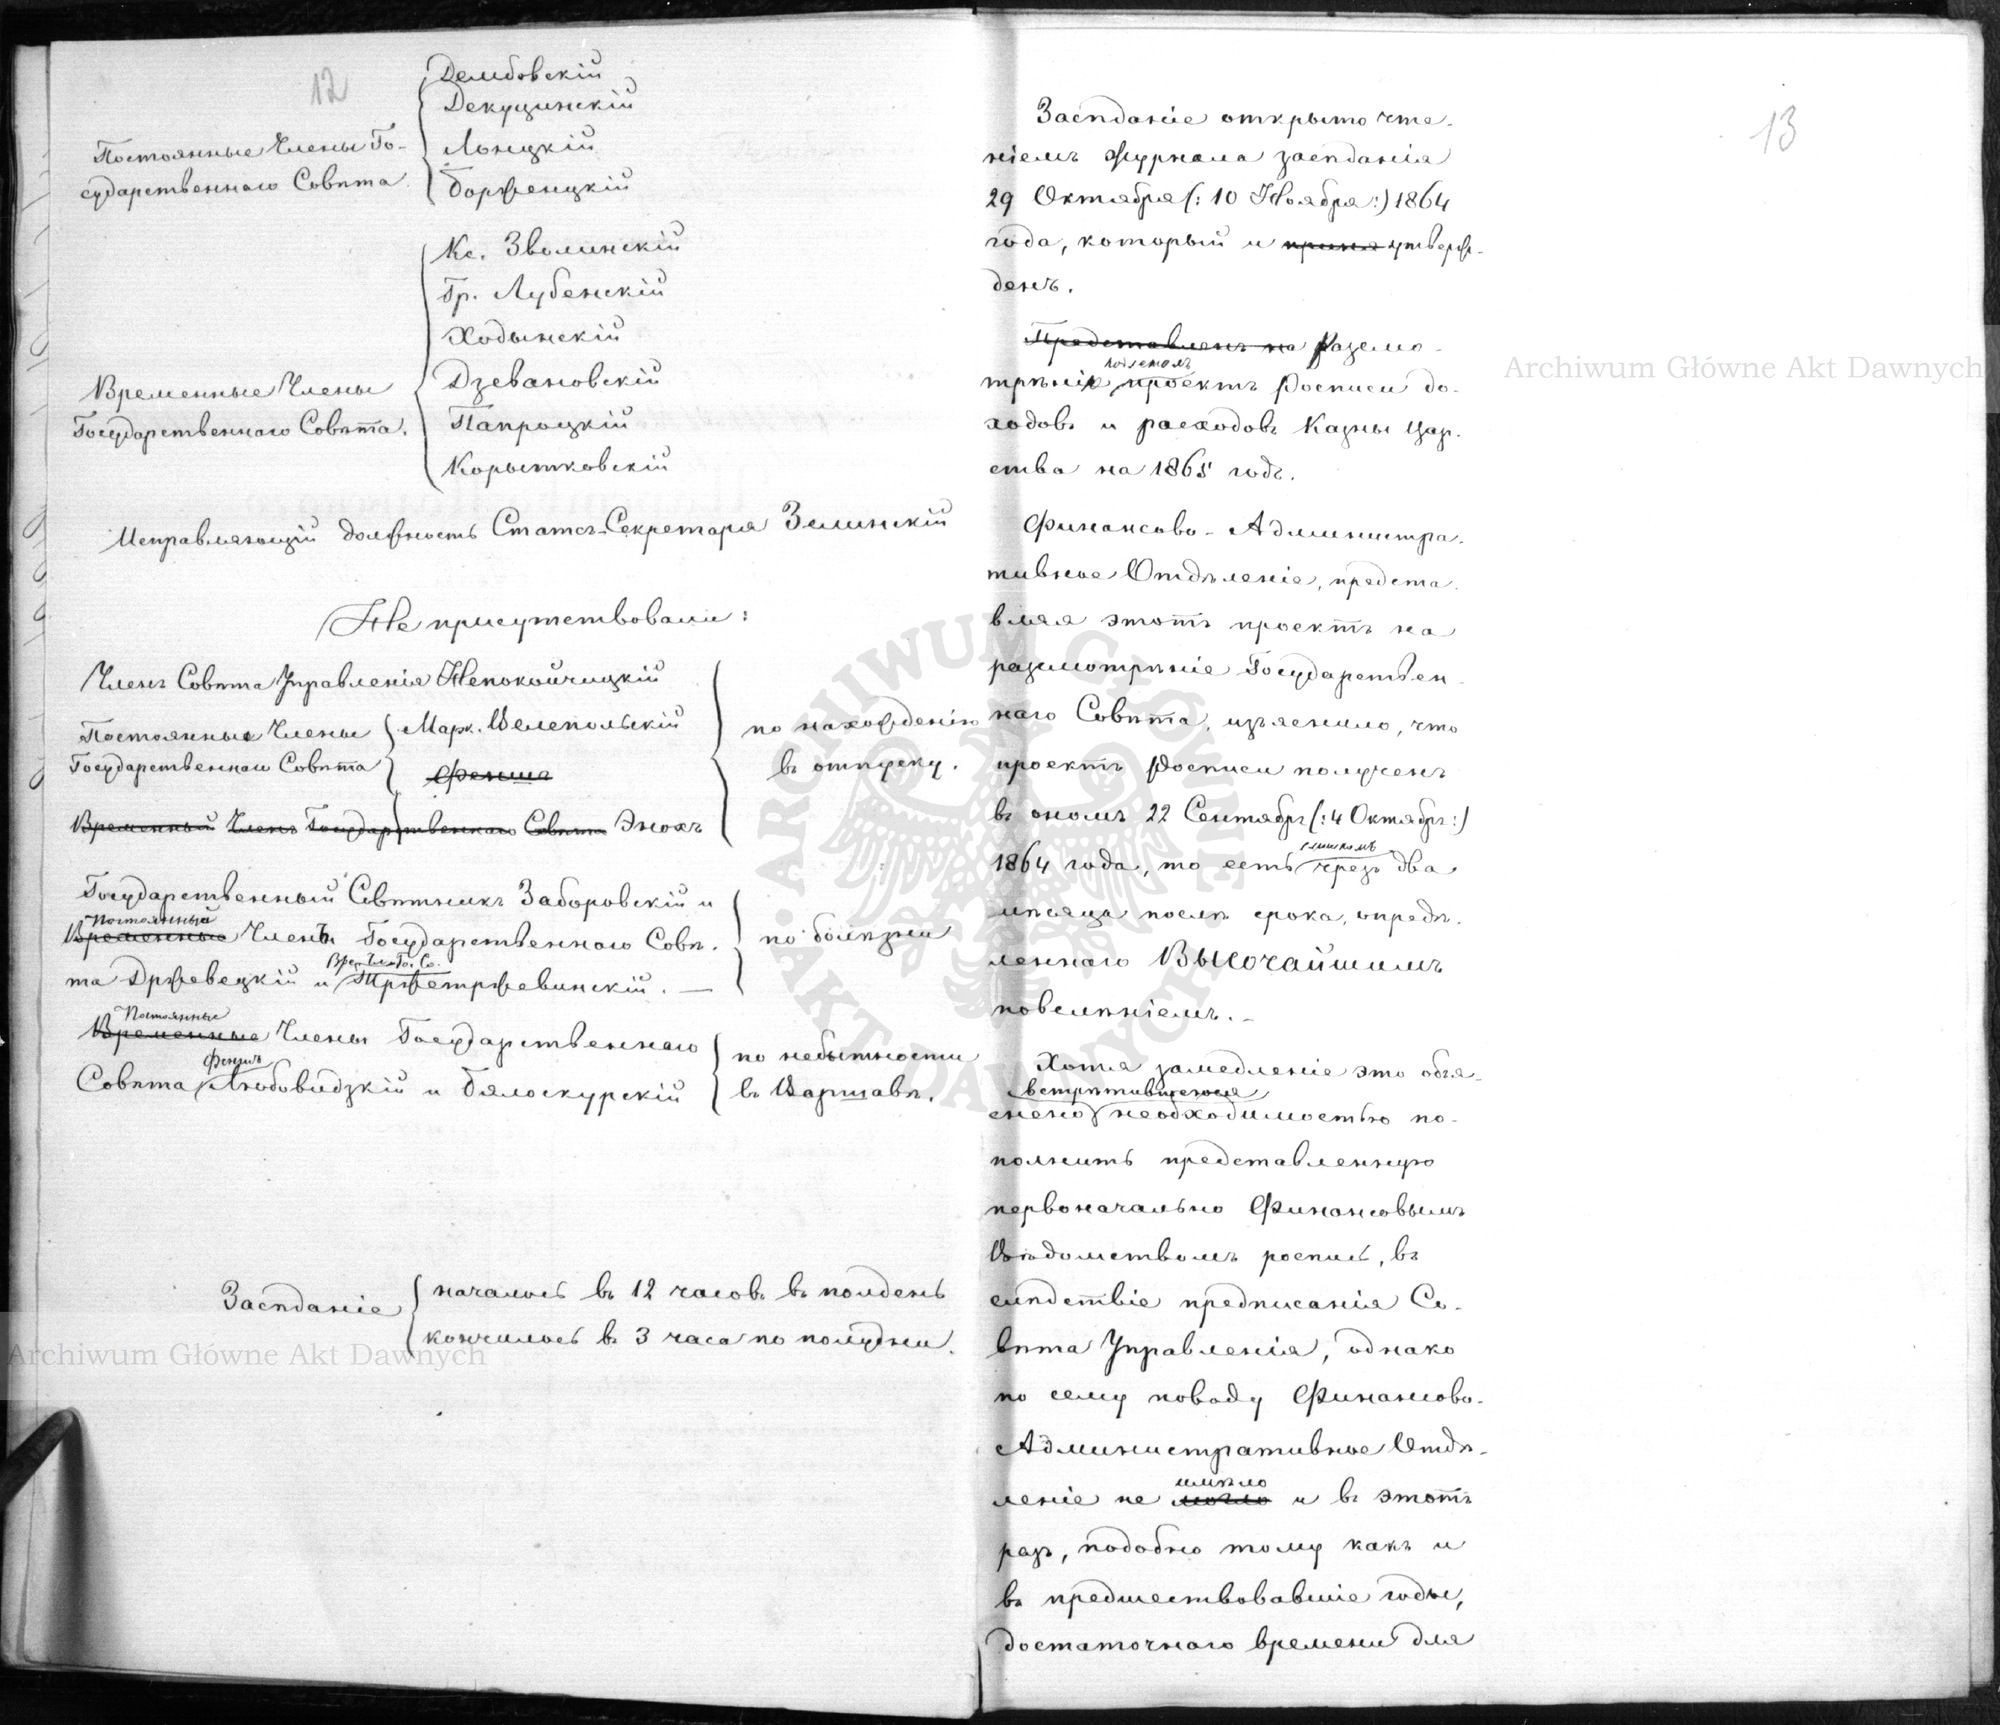 12
Дембовскій
Декуцинскій
Постоянные Члены Го-
Лонцкій
сударственнаго Совѣта
Борженцкій
Кс. Зволинскій
Гр. Лубенскій
Ходынскій
Временные Члены
Дзевановскій
Государственнаго Совѣта.
Папроцкій
Корытковскій
Исправляющій должность Статсъ-Секретаря Зелинскій
Не присутствовали:
Членъ Совѣта Управленія Непокойчицкій
Постоянные Члены
Марк. Велепольскій
по нахожденію
Государственнаго Совѣта
Феншъ
въ отпуску.
Временный Членъ Государственнаго Совѣта Энохъ
Государственный Совѣтникъ Заборовскій и
Постоянный
Временные Членъ Государственнаго Совѣ-
по болѣзни
Вре. Членъ Го. Со.
та Држевецкій и Тржетржевинскій. —
Постоянные
Временные Члены Государственнаго
по небытности
Феншъ
Совѣта Любовидзкій и Бялоскурскій
въ Варшавѣ.
Засѣданіе
началось въ 12 часовъ въ полдень
кончилось въ 3 часа по полудни.
13
Засѣданіе открыто чте-
ніемъ журнала засѣданія
29 Октября (: 10 Ноября :) 1864
года, который и приня утверж-
денъ.
Представленъ на Разсмо-
трѣніе проектъ Росписи до-
ходовъ и расходовъ Казны Цар-
ства на 1865 годъ.
Финансово-Администра-
тивное Отдѣленіе, предста-
вляя этотъ проектъ на
разсмотрѣніе Государствен-
наго Совѣта, изъяснило, что
проектъ Росписи полученъ
въ ономъ 22 Сентября (: 4 Октября :)
слишкомъ
1864 года, то есть чрезъ два
мѣсяца послѣ срока, опредѣ-
леннаго Высочайшимъ
повелѣніемъ. —
Хотя замедленіе это объя-
встрѣтившеюся
снено необходимостью по-
полнить представленную
первоначально Финансовымъ
Вѣдомствомъ роспись, въ
слѣдствіе предписанія Со-
вѣта Управленія, однако
по сему поводу Финансово-
Административное Отдѣ-
имѣло
леніе не могло и въ этотъ
разъ, подобно тому какъ и
въ предшествовавшіе годы,
достаточнаго времени для
Archiwum Główne Akt Dawnych
Archiwum Główne Akt Dawnych
ARCHIWUM GŁÓWNE AKT DAWNYCH